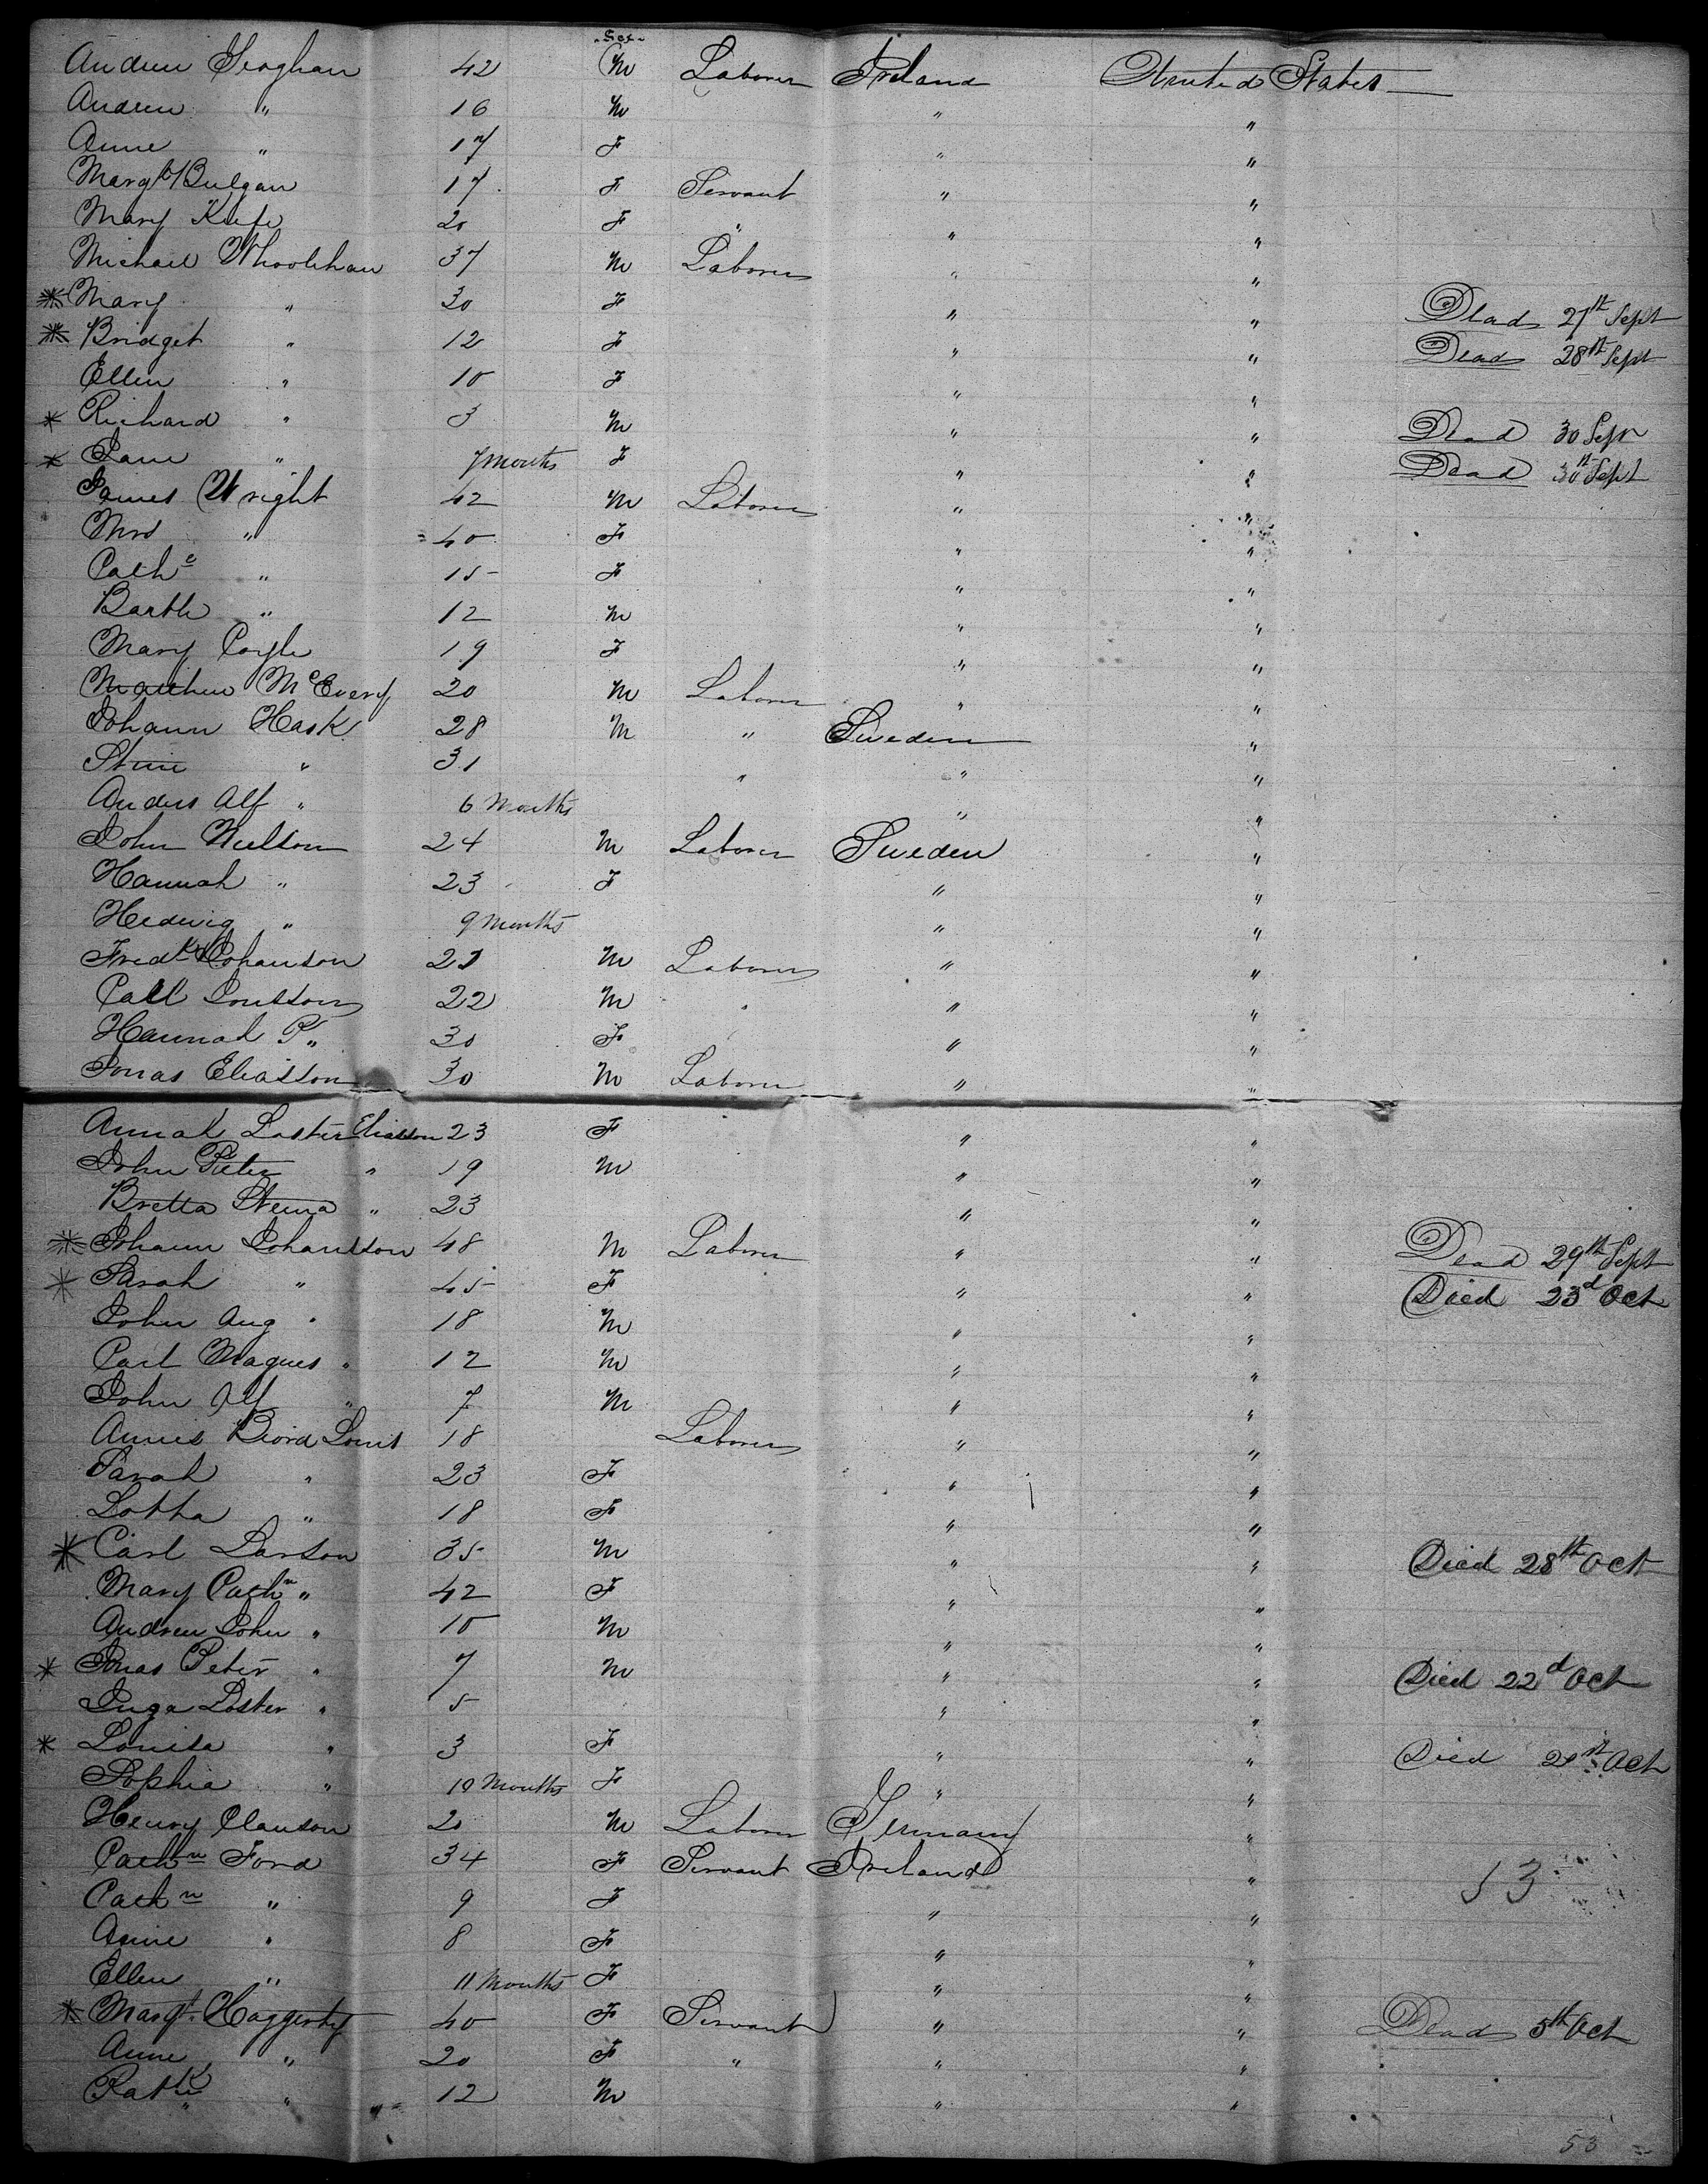 Sex
Andrew Geoghan 42 M Laborer Ireland United States
Andrew " 16 M " "
Anne " 17 F " "
Margt Bulgan 17 F Servant " "
Mary Kufe 20 F " " "
Michael Whoolehan 37 M Laborer " "
* Mary " 30 F " " Dead 27th Sept
* Bridget " 12 F " " Dead 28th Sept
Ellen " 10 F " "
* Richard " 3 M " " Dead 30 Sept
* Jane " 7 months F " " Dead 30th Sept
James Wright 42 M Laborer " "
Mrs " 40 F " "
Cathe " 15 F " "
Barth " 12 M " "
Mary Coyle 19 F " "
Matthew McEvery 20 M Laborer " "
Johann Hask 28 M " Sweden "
Stine " 31 " " "
Anders Alf " 6 Months " "
John Neelson 24 M Laborer Sweden "
Hannah " 23 F " "
Hedwig " 9 Months " "
Fredk Johanson 21 M Laborer " "
Carl 22 M " " "
Hannah P " 30 F " "
Jonas Eliasson 30 M Laborer " "
Annah Laster Eliasson 23 F " "
John Pieter " 19 M " "
Bretta Stena " 23 " "
* Johann Johansson 48 M Laborer " " Dead 29th Sept
* Sarah " 45 F " " Died 23d Oct
John Aug " 18 M " "
Carl Magnes " 12 M " "
John Alf " 7 M " "
Annies Biord Louis 18 Laborer " "
Sarah " 23 F " "
Lotta " 18 F " "
* Carl Larson 35 M " " Died 28th Oct
Mary Cathn " 42 F " "
Andrew John " 10 M " "
* Jonas Peter " 7 M " " Died 22d Oct
Inga Laster " 5 " "
* Louisa " 3 F " " Died 21st Oct
Sophia " 10 Months F " "
Henry Clauson 20 M Laborer Germany "
Cathn Ford 34 F Servant Ireland "
13
Cathn " 9 F " "
Anne " 8 F " "
Ellen " 11 Months F " "
* Margt Haggerty 40 F Servant " " Dead 5th Oct
Anne " 20 F " " "
Patk " 12 M " "
53